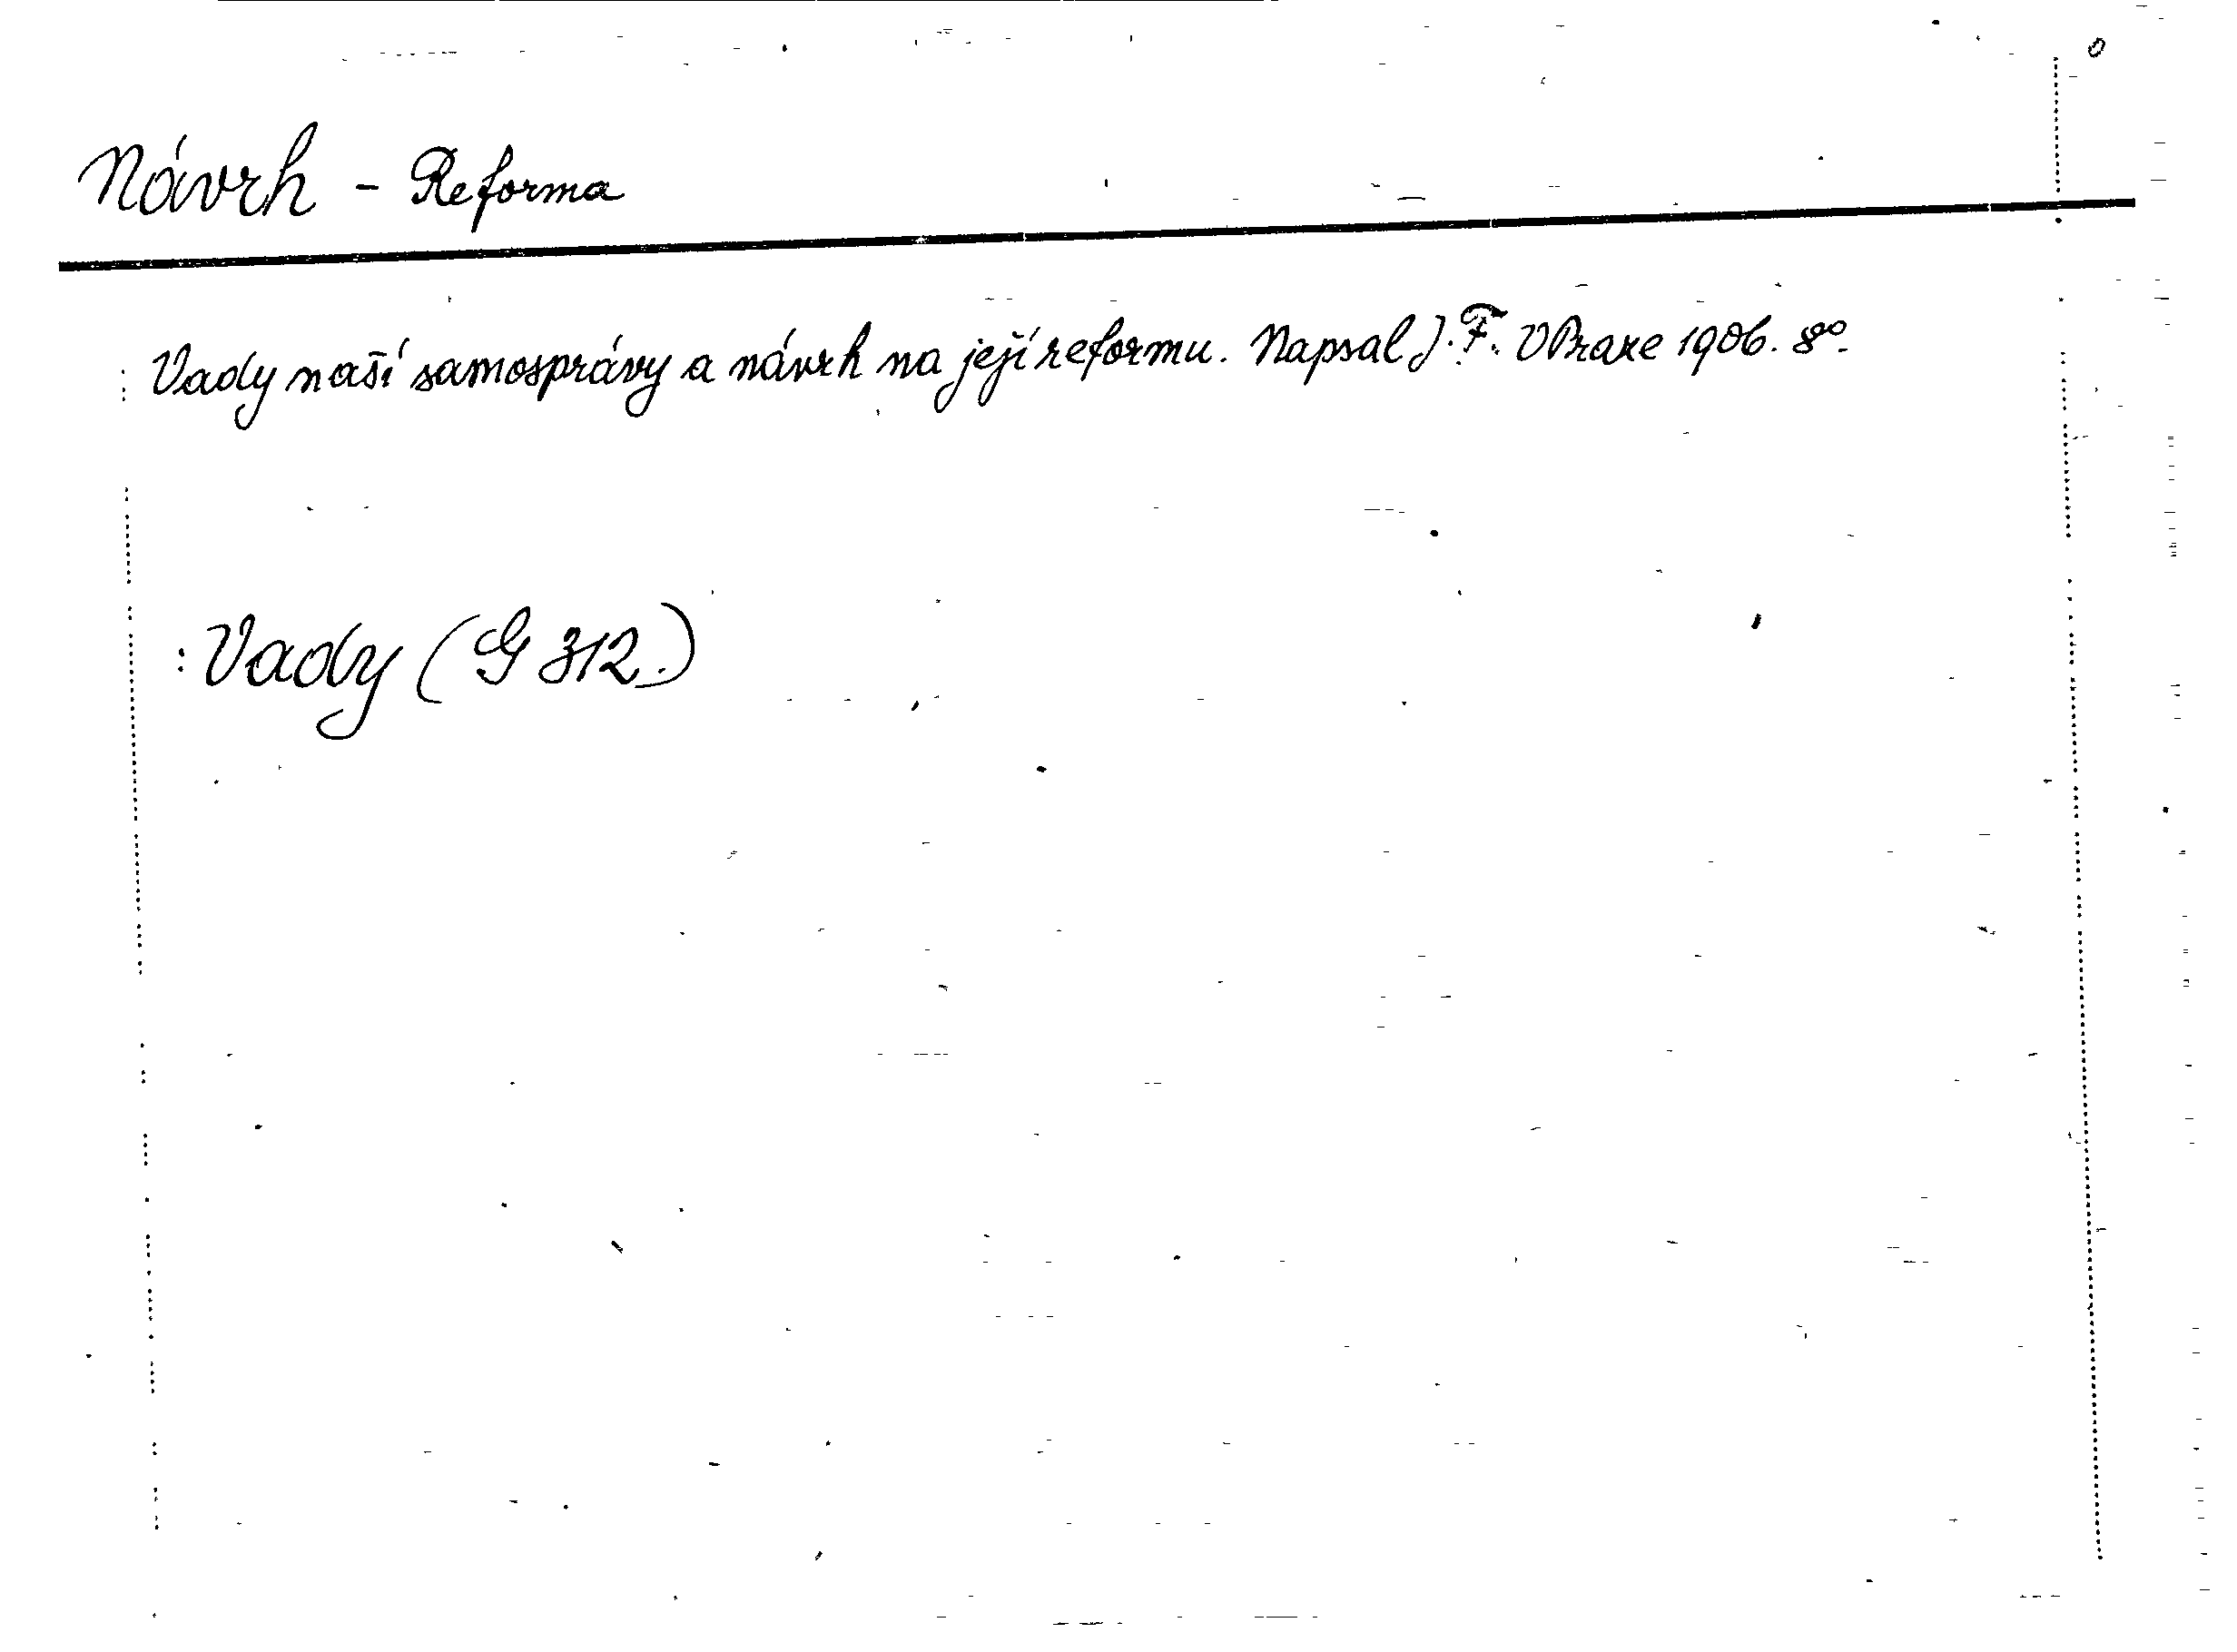 Návrh - Reforma
Vady naší samosprávy a návrh na její reformu. Napsal J. F. V Praze 1906. 8°.
: Vady (G 312.)